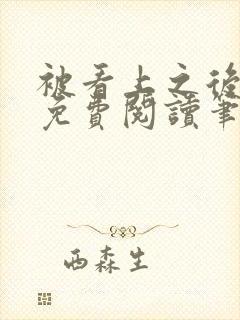 被看上之後
免費閱讀筆
西森生